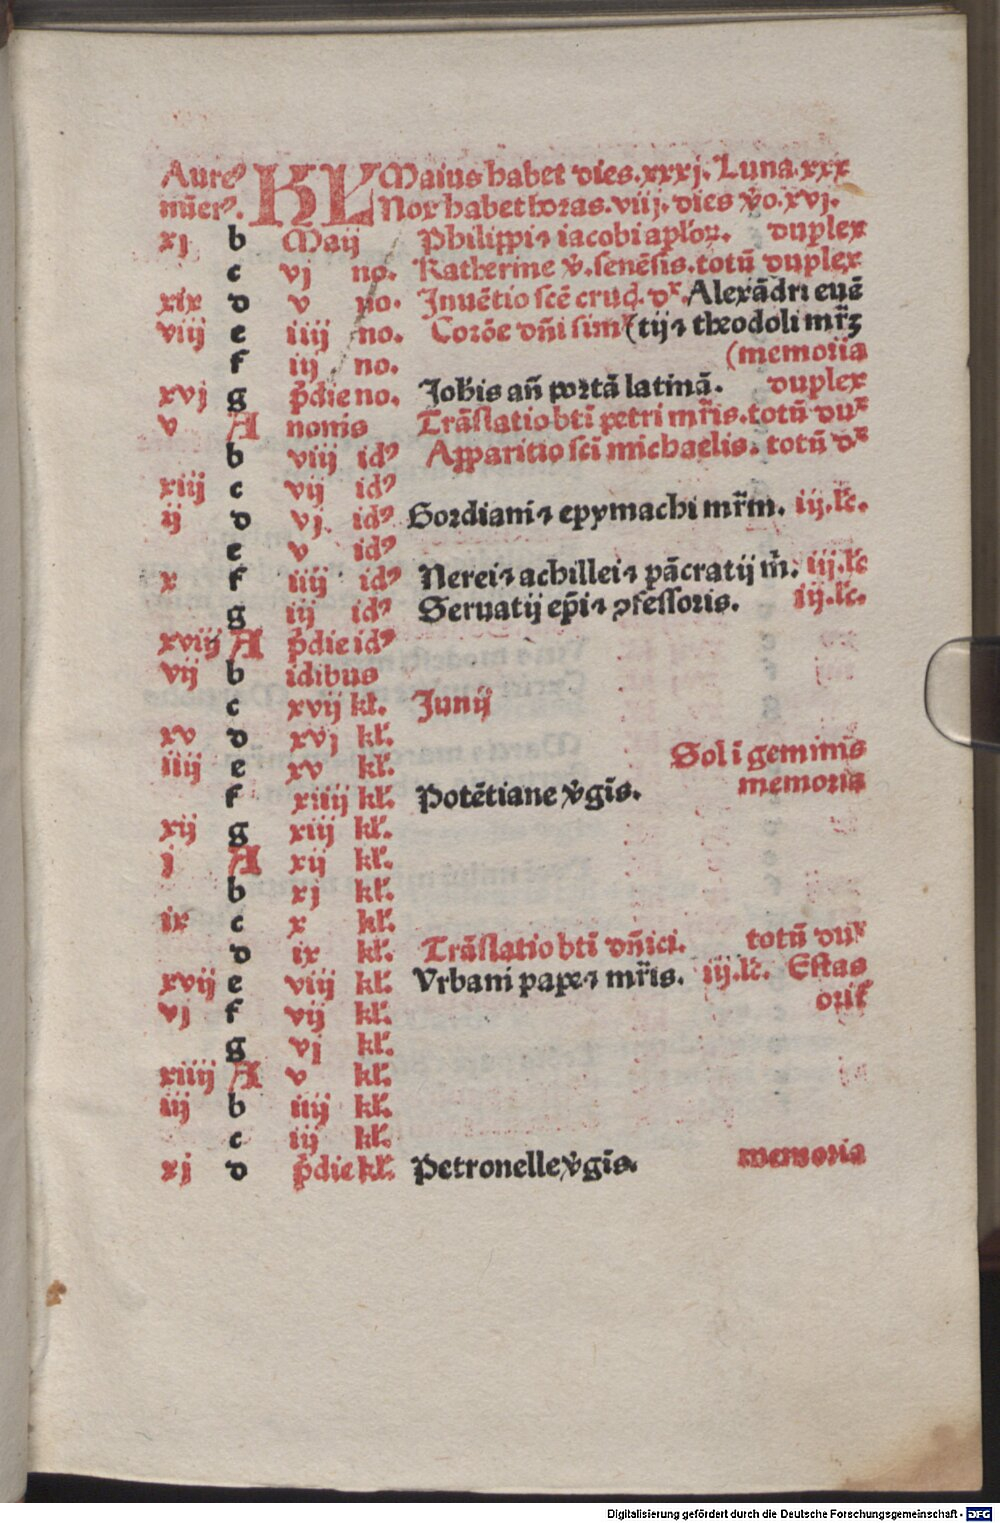 Aureꝰ KL Maius habet dies.xxxj. Luna.xxx
nũerꝰ. Nox habet horas.viij. dies v̊o.xvj.
xj b Maij Philippi ⁊ iacobi apl'oꝝ. duplex
c vj no. Katherine v̊.senẽsis.totũ duplex
xix d v no. Inuẽtio scẽ cruc̃. dx. Alexãdri euẽ
viij e iiij no. Corõe dñi simr (tij ⁊ theodoli mr̃ꝫ
f iij no. (memoria
xvj g p̃die no. Joh'is añ portã latinã. duplex
v A nonis Trãslatio bti᷃ petri mr̃is.totũ dux
b viij idꝰ Apparitio sci᷃ michaelis. totũ dx
xiij c vij idꝰ
ij d vj idꝰ Gordiani ⁊ epymachi mr̃m. iij.lc̃.
e v idꝰ
x f iiij idꝰ Nerei ⁊ achillei ⁊ pãcratij m̃. iij.lc̃
g iij idꝰ Seruatij ep̃i ⁊ ꝯfessoris. iij.lc̃.
xviij A p̃die idꝰ
vij b idibus
c xvij kl'. Junij
xv d xvj kl'.
iiij e xv kl'. Sol i᷃ geminis
f xiiij kl'. Potẽtiane v̊gi᷃s. memoria
xij g xiij kl'.
j A xij kl'.
b xj kl'.
ix c x kl'.
d ix kl'. Trãslatio bti᷃ dñici. totũ dux
xvij e viij kl'. Vrbani pape ⁊ mr̃is. iij.lc̃. Estas
vj f vij kl'. orit᷒
g vj kl'.
xiiij A v kl'.
iij b iiij kl'.
c iij kl'.
xj d p̃die kl'. Petronelle v̊gi᷃s. memoria
Digitalisierung gefördert durch die Deutsche Forschungsgemeinschaft - DFG